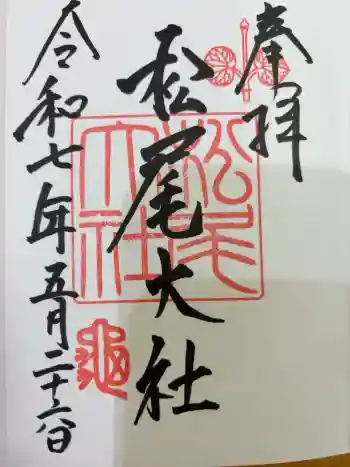 奉拝
松尾大社
松尾大社
令和七年五月二十六日